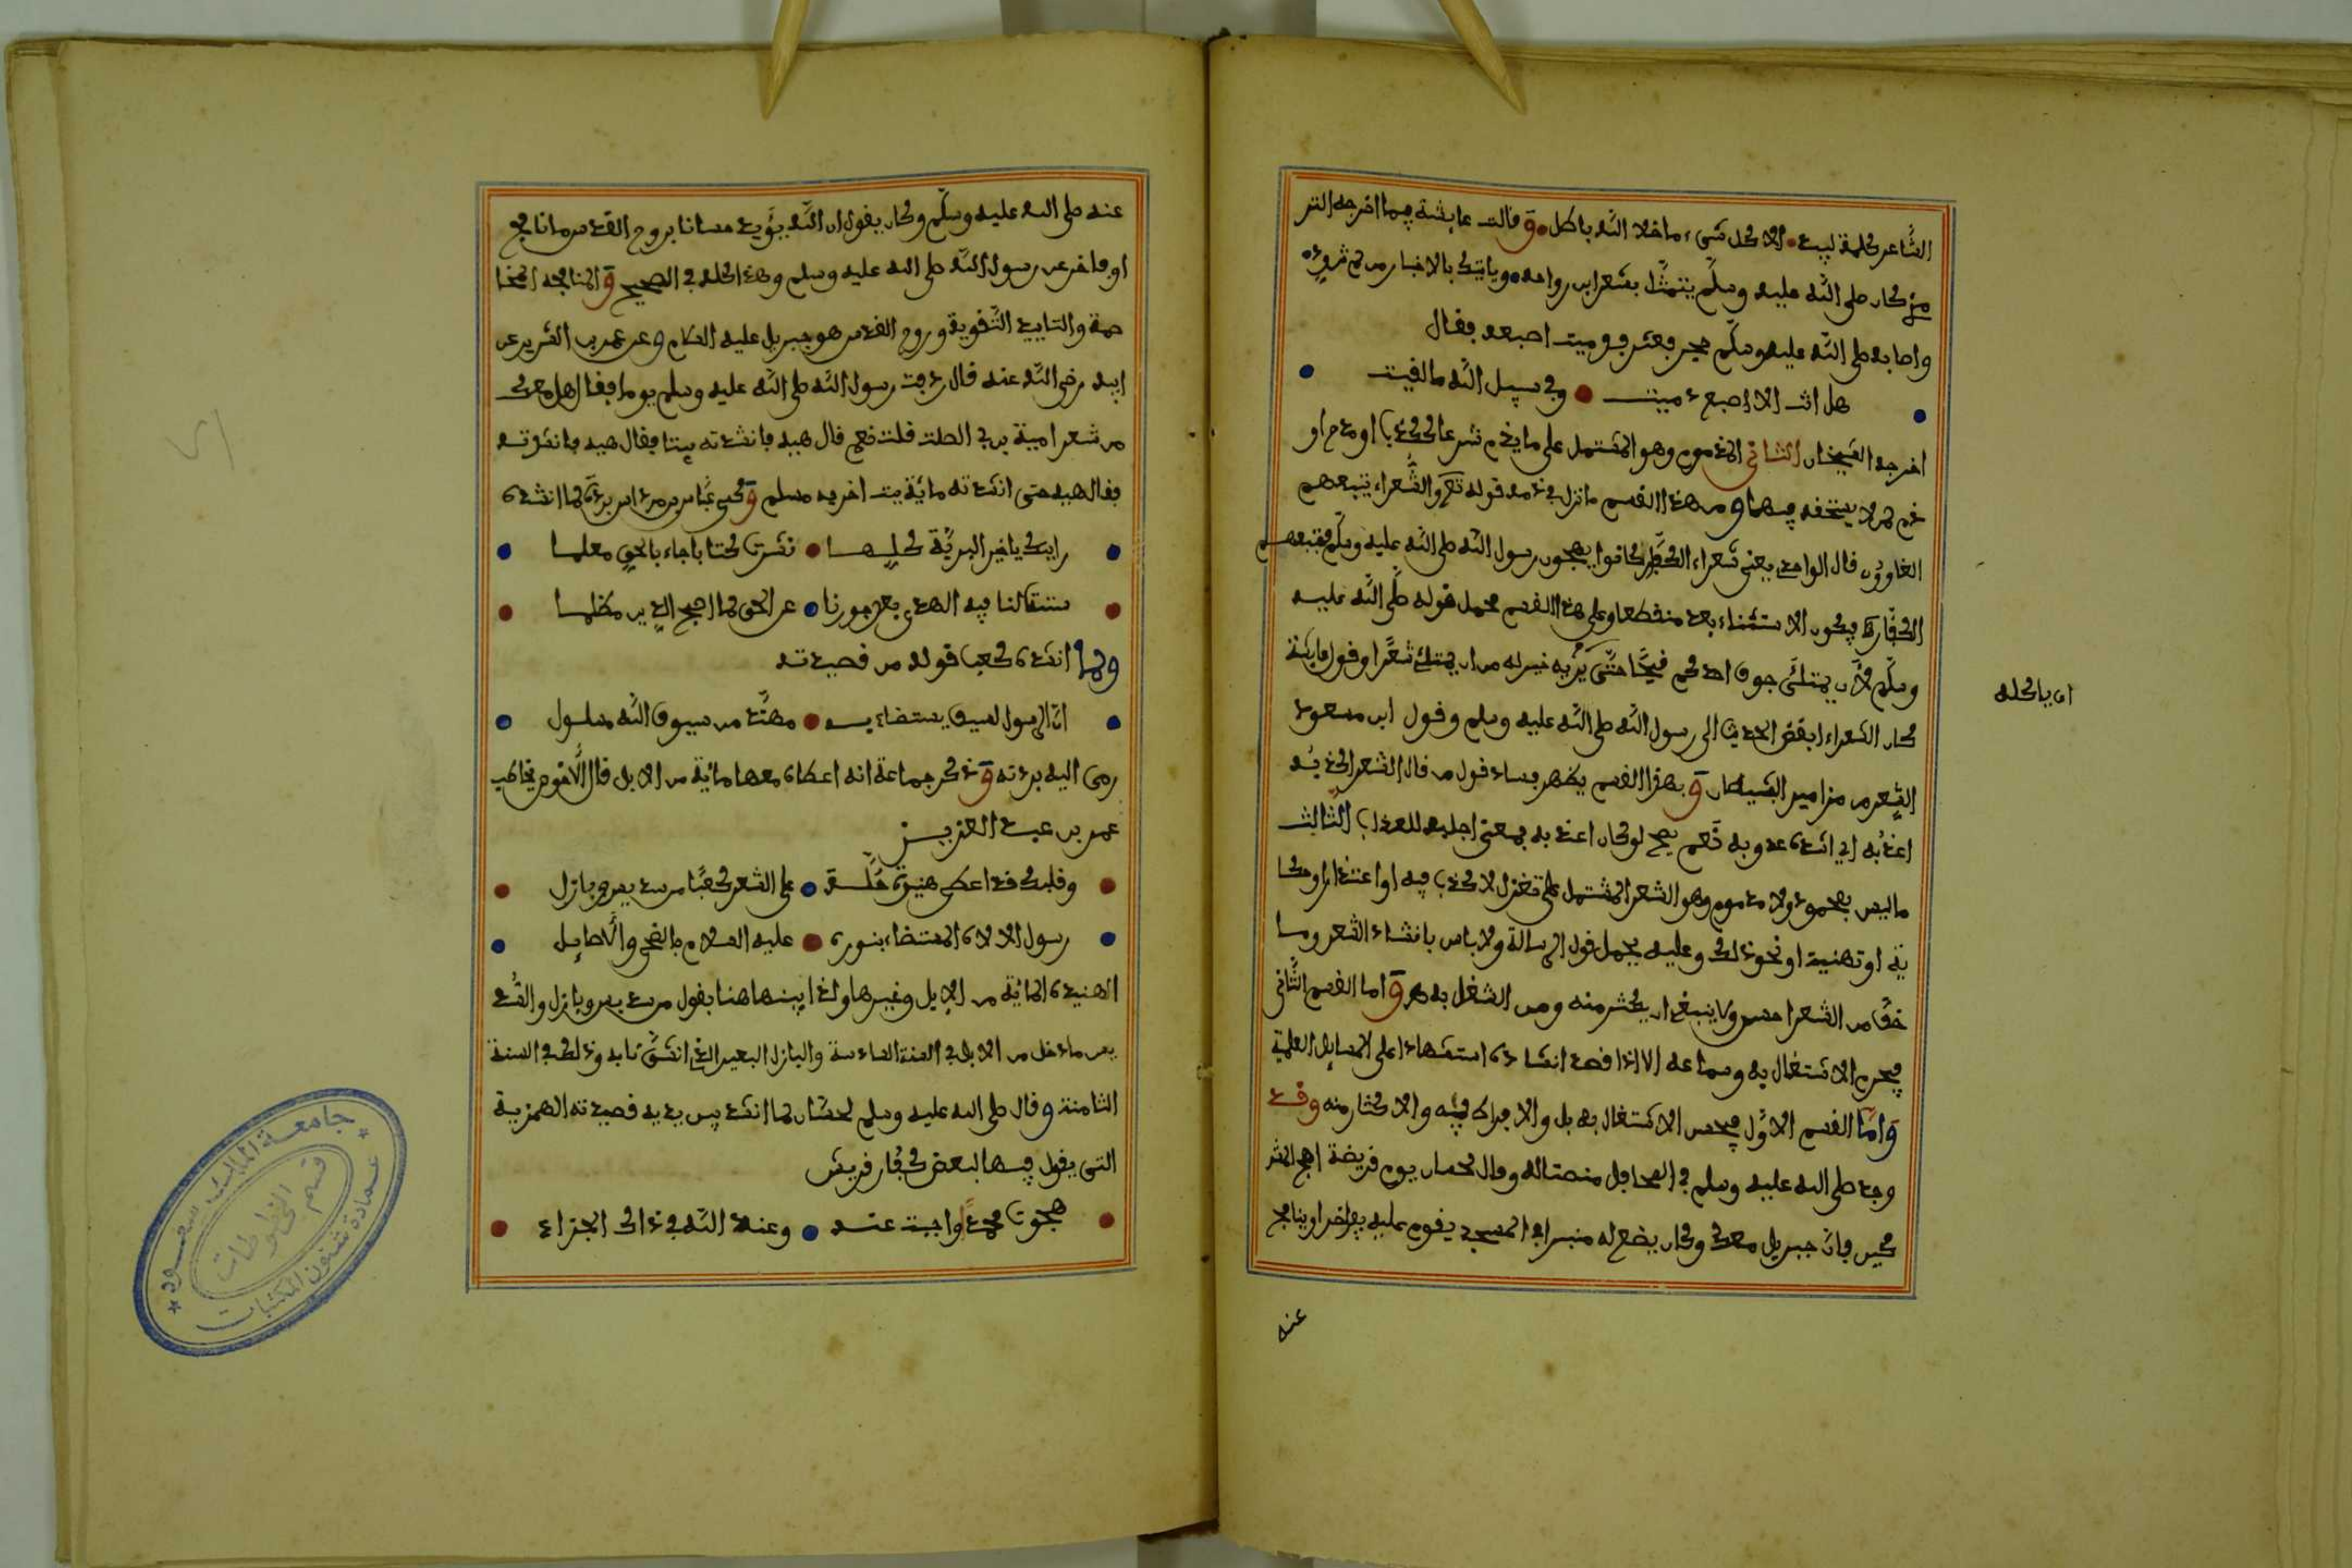 الشاعر كلمة لبيد الا كل شيء ما خلا الله باطل وقالت عايشة فيما اخرجه التر
مذي كان صلى الله عليه وسلم يتمثل بشعر ابن رواحه وياتيك بالاخبار من لم تزوده
واصابه صلى الله عليه وسلم حجر فعثر فدميت اصبعه فقال
هل انت الا اصبع دميت وفي سبيل الله ما لقيت
اخرجه الشيخان الثاني المذموم وهو المشتمل على ما يذم شرعا ككذب او مدح او
ذم لمن لا يستحقه فيهما ومن هذا القسم ما نزل في ذمه قوله تعلى والشعراء يتبعهم
الغاوون قال الواحدي يعني شعراء الكفار كانوا يهجون رسول الله صلى الله عليه وسلم فتبعهم
الكفار فيكون الاستثناء بعد منقطعا وعلى هذا القسم محمل قوله صلى الله عليه
وسلم لان يمتلئ جوف احدكم قيحا حتى يريه خير له من ان يمتلئ شعرا وقول عايشة
كان الشعراء ابغض الحديث الى رسول الله صلى الله عليه وسلم وقول ابن مسعود
الشعر من مزامير الشيطان وبهذا القسم يظهر فساد قول من قال الشعر اكذبه
اعذبه اي انشده عدوبه نعم يصح لو كان اعذبه بمعنى اجلبه للعذاب الثالث
ما ليس بمحمود ولا مذموم وهو الشعر المشتمل على تغزل لا كذب فيه او اعتذار او شكا
ية او تهنية او نحو ذلك وعليه يحمل قول الرسالة ولا باس بانشاء الشعر وما
خف من الشعر احسن ولا ينبغي ان يكثر منه ومن الشغل به واما القسم الثاني
فيحرم الاشتغال به وسماعه الا اذا قصد انشاده استشهادا على المسايل العلمية
واما القسم الاول فيحسن الاشتغال به بل والافراط فيه والاكثار منه وقد
وضع صلى الله عليه وسلم في المحافل منصتا له وقال لحسان يوم قريضة اهج المشر
كين فان جبريل معك وكان يضع له منبرا في المسجد يقوم عليه يفاخر او ينافح
عنه
عنه صلى الله عليه وسلم وكان يقول ان الله يؤيد حسانا بروح القدس ما نافح
او فاخر عن رسول الله صلى الله عليه وسلم وهذا كله في الصحيح والمنافحة المخا
صمة والتاييد التقوية وروح القدس هو جبريل عليه السلام وعن عمر بن الشريد عن
ابيه رضي الله عنه قال ردفت رسول الله صلى الله عليه وسلم يوما فقال هل معك
من شعر امية بن ابي الصلت قلت نعم قال هيه فانشدته بيتا فقال هيه فانشدته
فقال هيه حتى انشدته مائة بيت اخرجه مسلم وكسى عباس بن مرداس بردة لما انشده
رايتك يا خير البرية كلها نشرت كتابا جاء بالحق معلما
سننت لنا فيه الهدى بعد جورنا عن الحق لما اصبح الدين مظلما
ولما انشده كعب قوله من قصيدته
ان الرسول لسيف يستضاء به مهند من سيوف الله مسلول
رمى اليه بردته وذكر جماعة انه اعطاه معها مائة من الابل قال الاخوص يخاطب
عمر بن عبد العزيز
وقبلك قد اعطى هنيدة جلة على الشعر كعبا من سديس وبازل
رسول الاله المستضاء بنوره عليه السلام بالضحى والاصايل
الهنيدة المائة من الابل وغيرها ولذا بينها هنا بقول من سديس وبازل والسد
يس ما دخل من الابل في السنة السادسة والبازل البعير الذي انشق نابه وذلك في السنة
الثامنة وقال صلى الله عليه وسلم لحسان لما انشد بين يديه قصيدته الهمزية
التي يقول فيها لبعض كفار قريش
هجوت محمدا واجبت عنه وعند الله في ذاك الجزاء
جامعة الملك سعود
عمادة شئون المكتبات
قسم المخطوطات